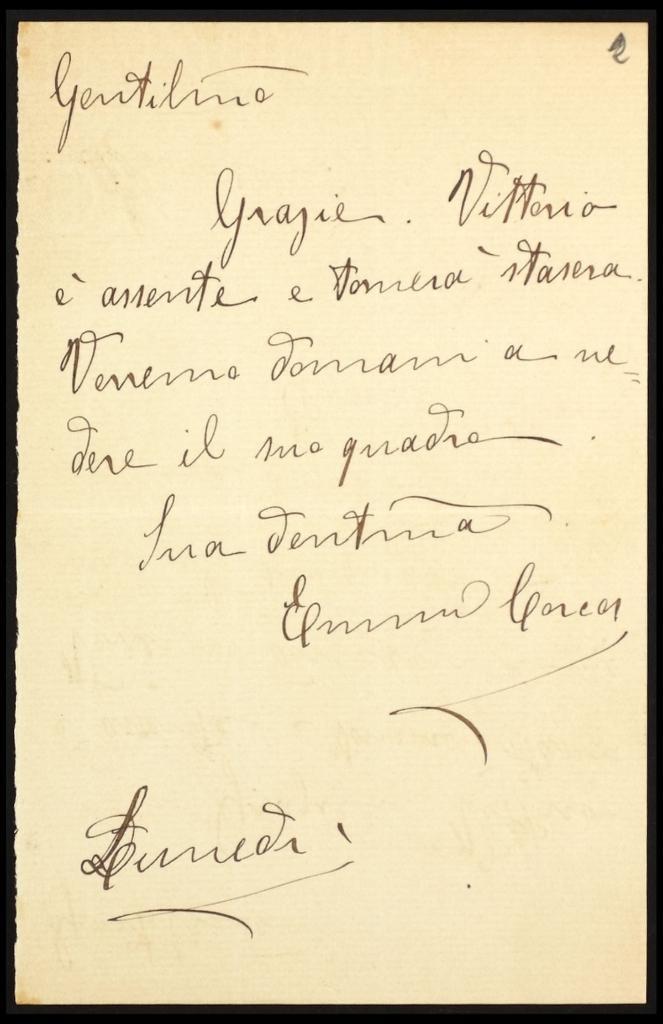 2
Gentilma
Grazie. Vittorio
è assente e tornerà stasera.
Verremo domani a ve=
dere il suo quadro.
Sua
Emma Corcos
Lunedì